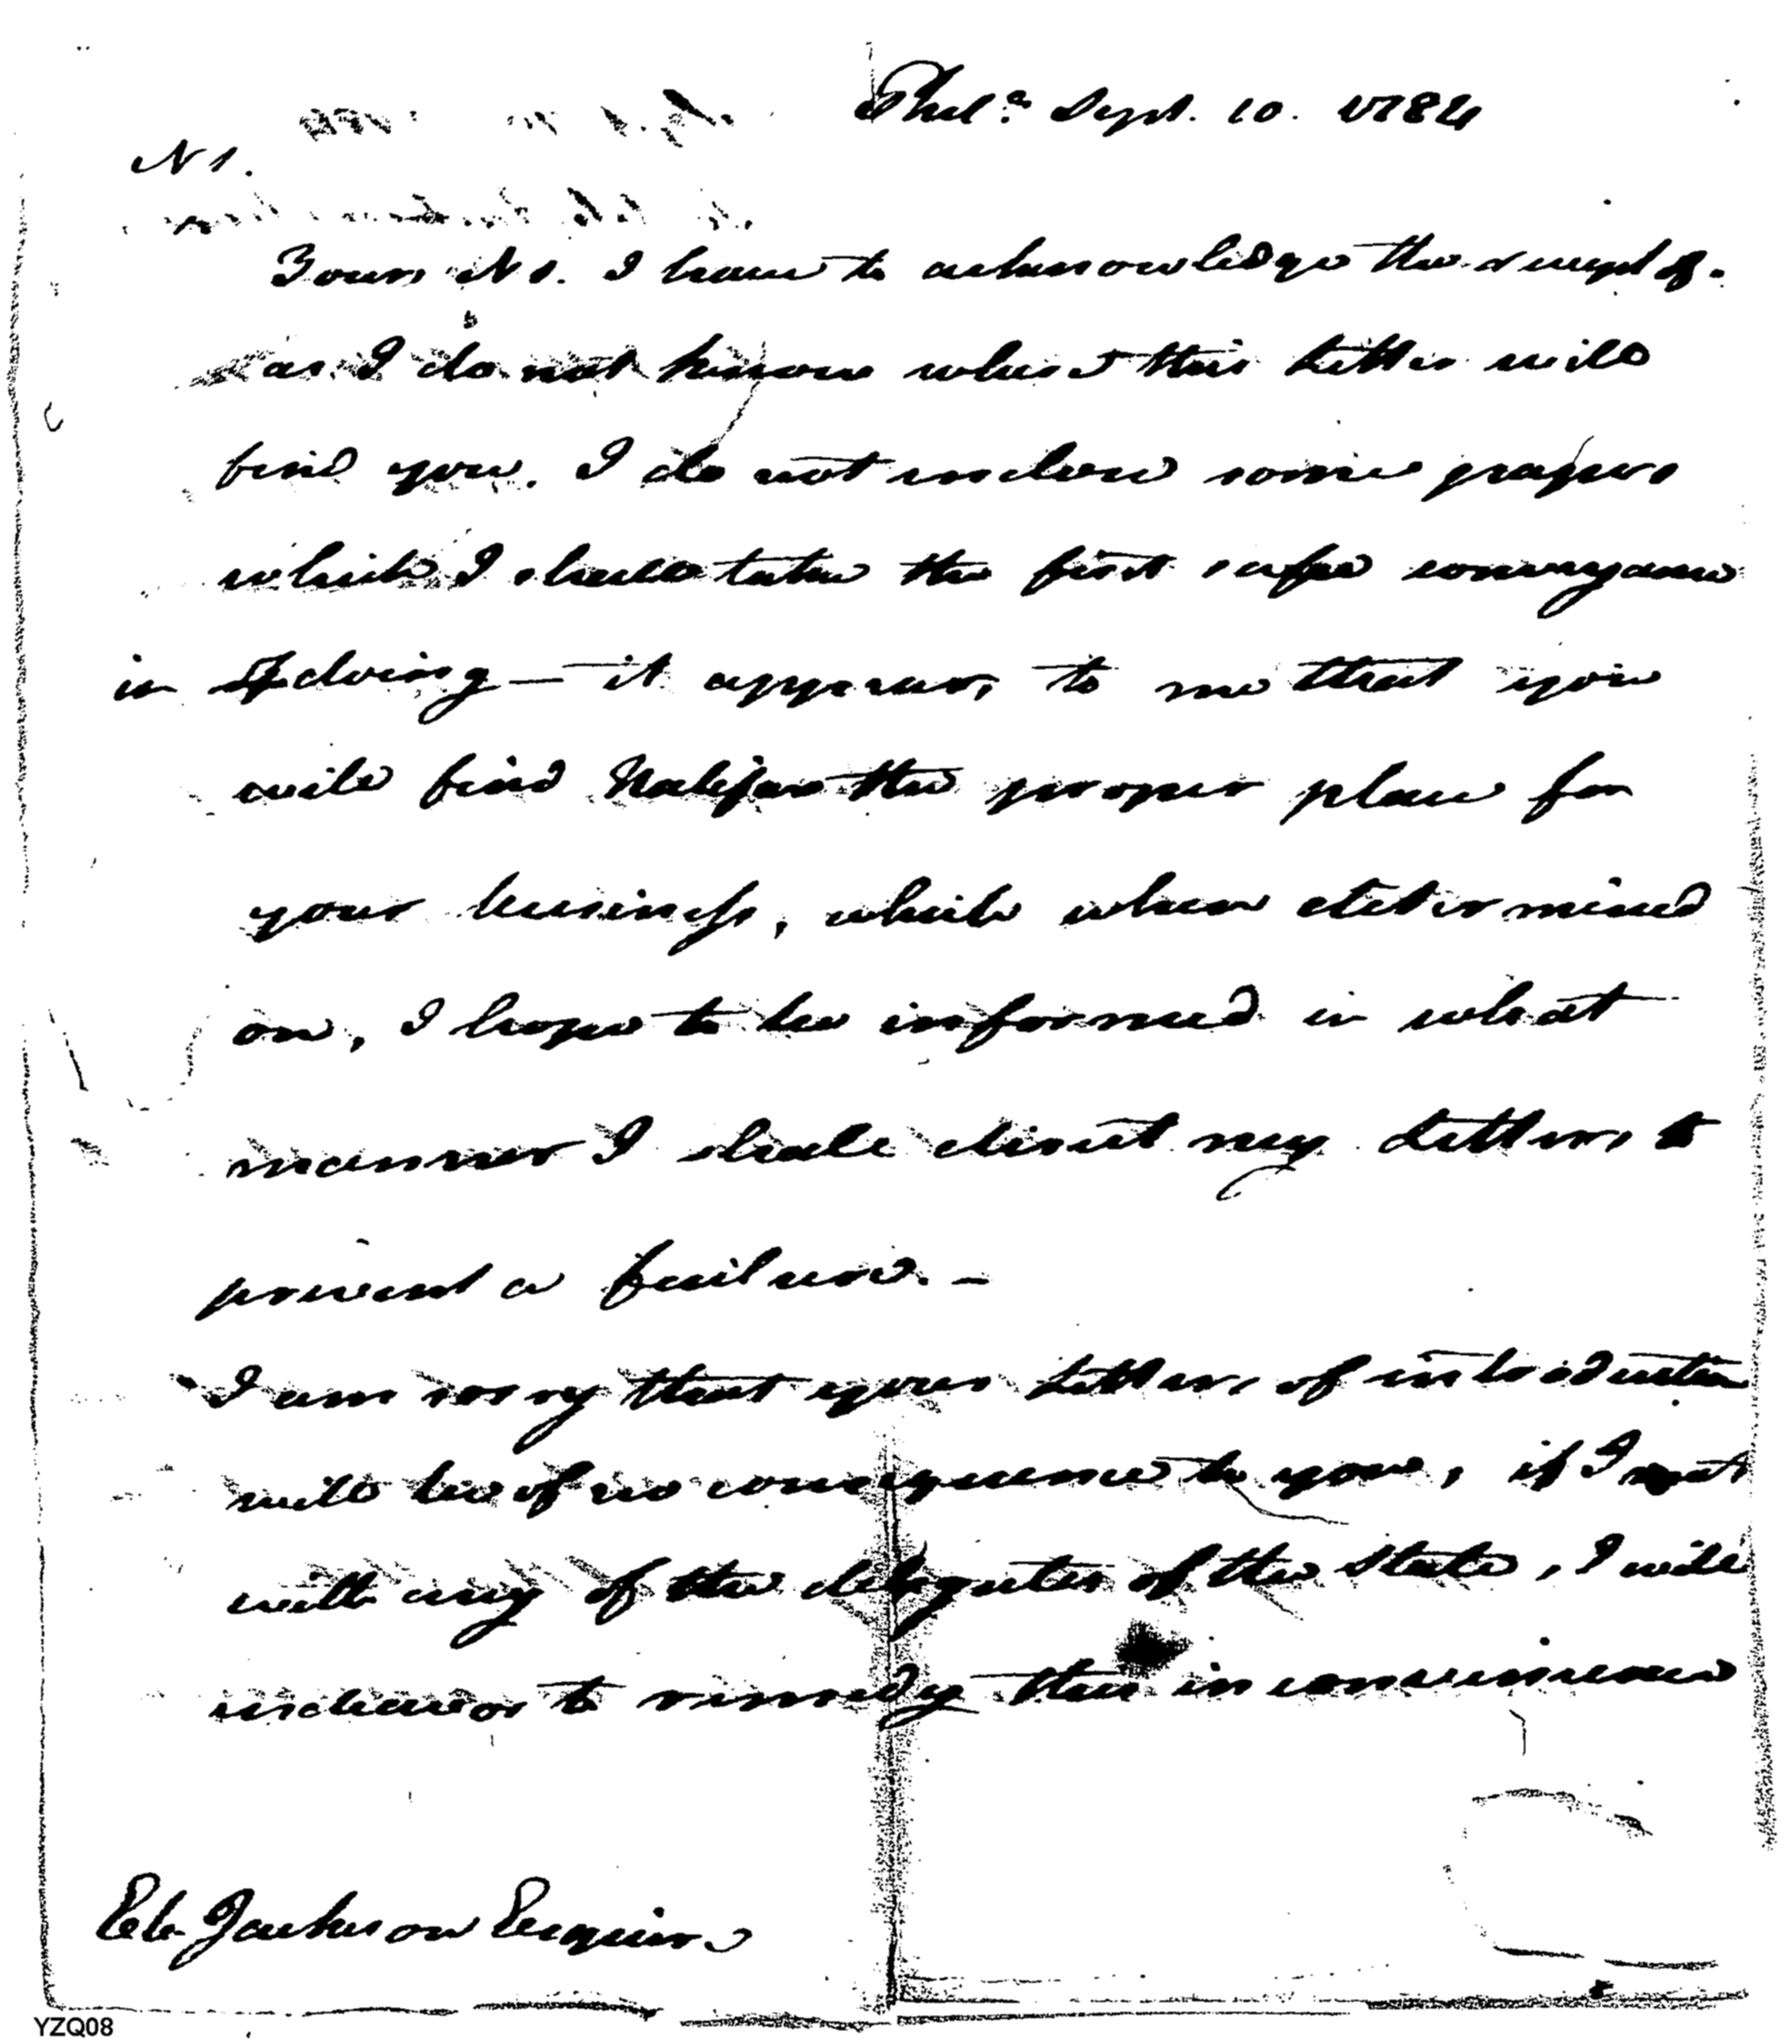 Phila. Sept. 10. 1784
N 1.
Your N 1. I have to acknowledge the receipt of.
as I do not know where this Letter will
find you. I do not inclose some papers
which I shall take the first safe conveyance
in doing — it appears to me that you
will find Halifax the proper place for
your business, which when determined
on, I hope to be informed in what
manner I shall direct my Letters to
prevent a failure. —
I am sorry that your Letters of introduction
will be of no consequence to you, if I meet
with any of the delegates of the State, I will
endeavor to remedy this inconvenience
Eb. Jackson Esquire
YZQ08